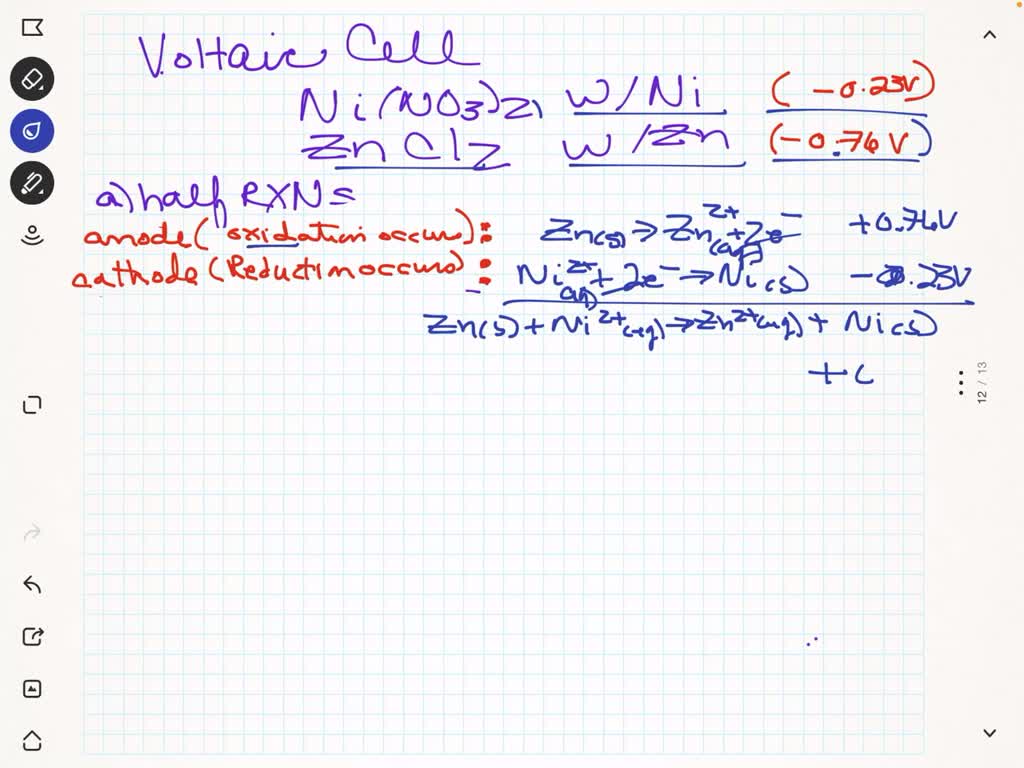 Voltaic Cell
Ni(NO3)2, w/Ni (-0.23V)
ZnCl2 w/Zn (-0.76V)
a) half RXNs
anode (oxidation occurs): Zn(s) → Zn²⁺(aq) + 2e⁻ +0.76V
cathode (Reduction occurs): Ni²⁺(aq) + 2e⁻ → Ni(s) -0.23V
Zn(s) + Ni²⁺(aq) → Zn²⁺(aq) + Ni(s)
+
12 / 13